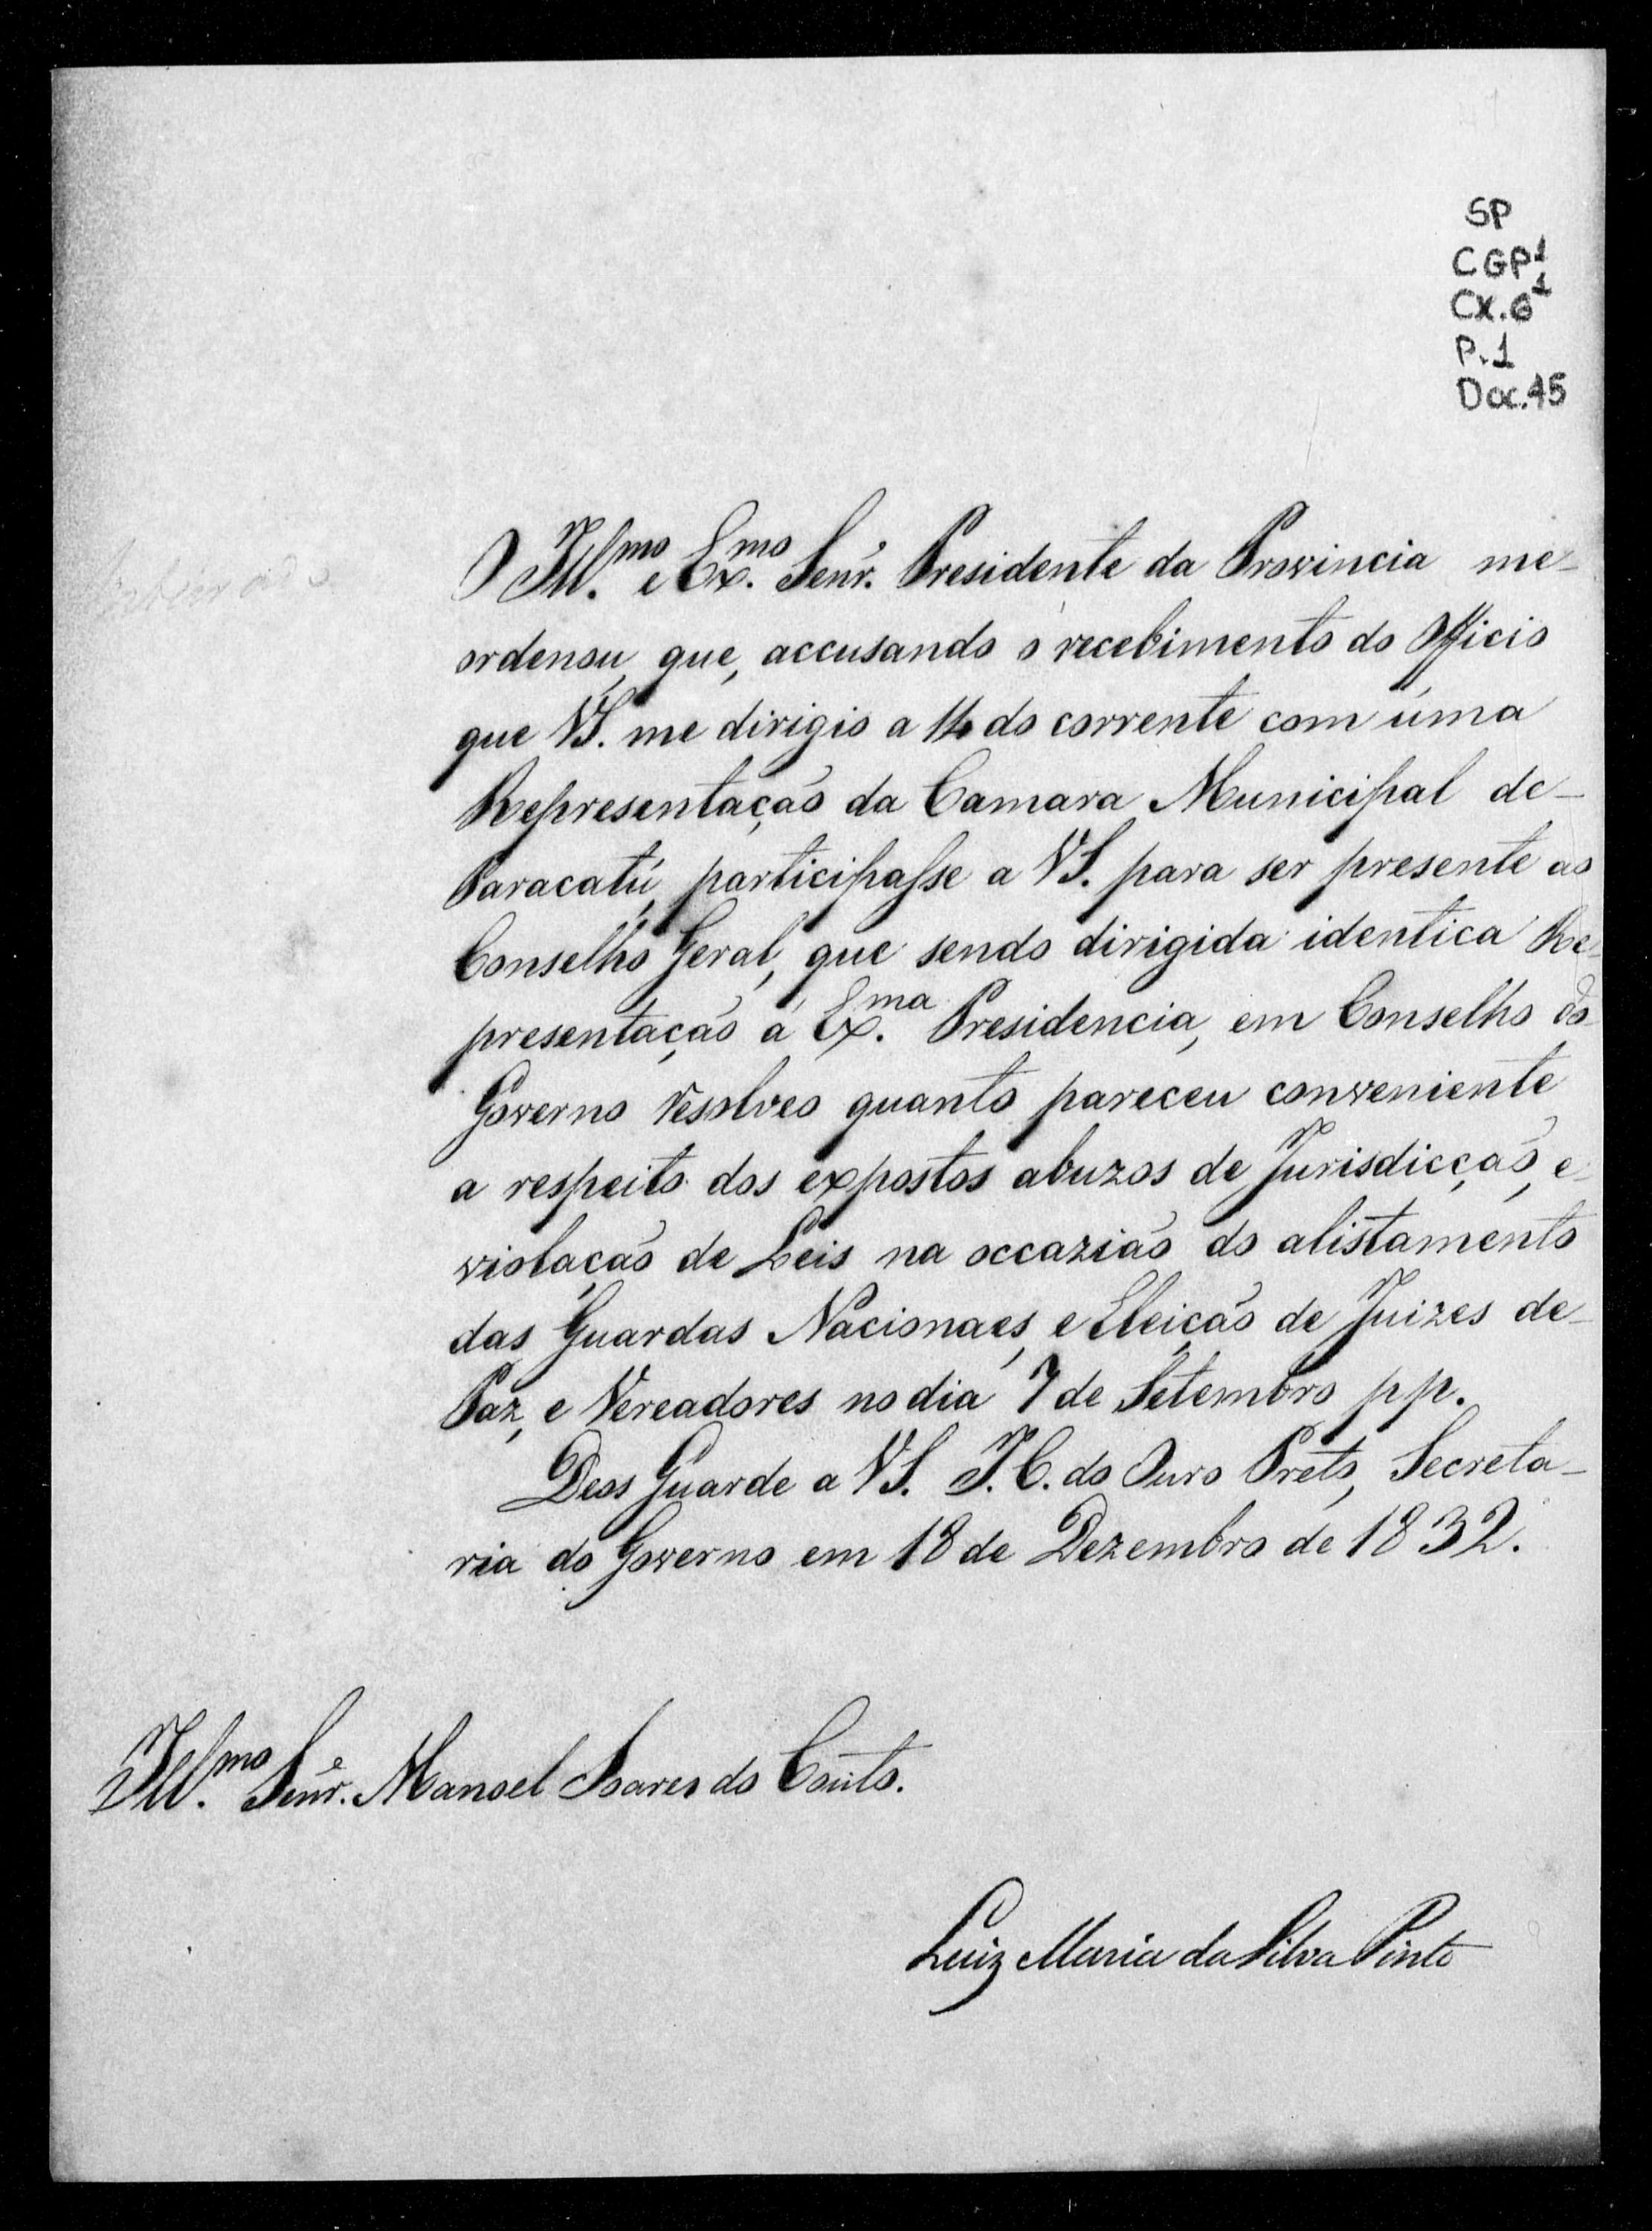 SP
CGP¹
CX.6¹
P.1
Doc.45
O Ill.mo e Ex.mo Senr. Presidente da Provincia me
ordenou, que, accusando o recebimento do Officio
que VS. me dirigio a 14 do corrente com uma
Representação da Camara Municipal de
Paracatú, participasse a VS. para ser presente ao
Conselho Geral, que sendo dirigida identica Re-
presentação á Ex.ma Presidencia, em Conselho do
Governo resolveo quanto pareceu conveniente
a respeito dos expostos abuzos de Jurisdicção, e
violação de Leis na occazião do alistamento
das Guardas Nacionaes, e Eleição de Juizes de
Paz, e Vereadores no dia 7 de Setembro pp.
Deos Guarde a VS. I. C. do Ouro Preto, Secreta-
ria do Governo em 18 de Dezembro de 1832.
Ill.mo Senr. Manoel Soares do Couto.
Luiz Maria da Silva Pinto